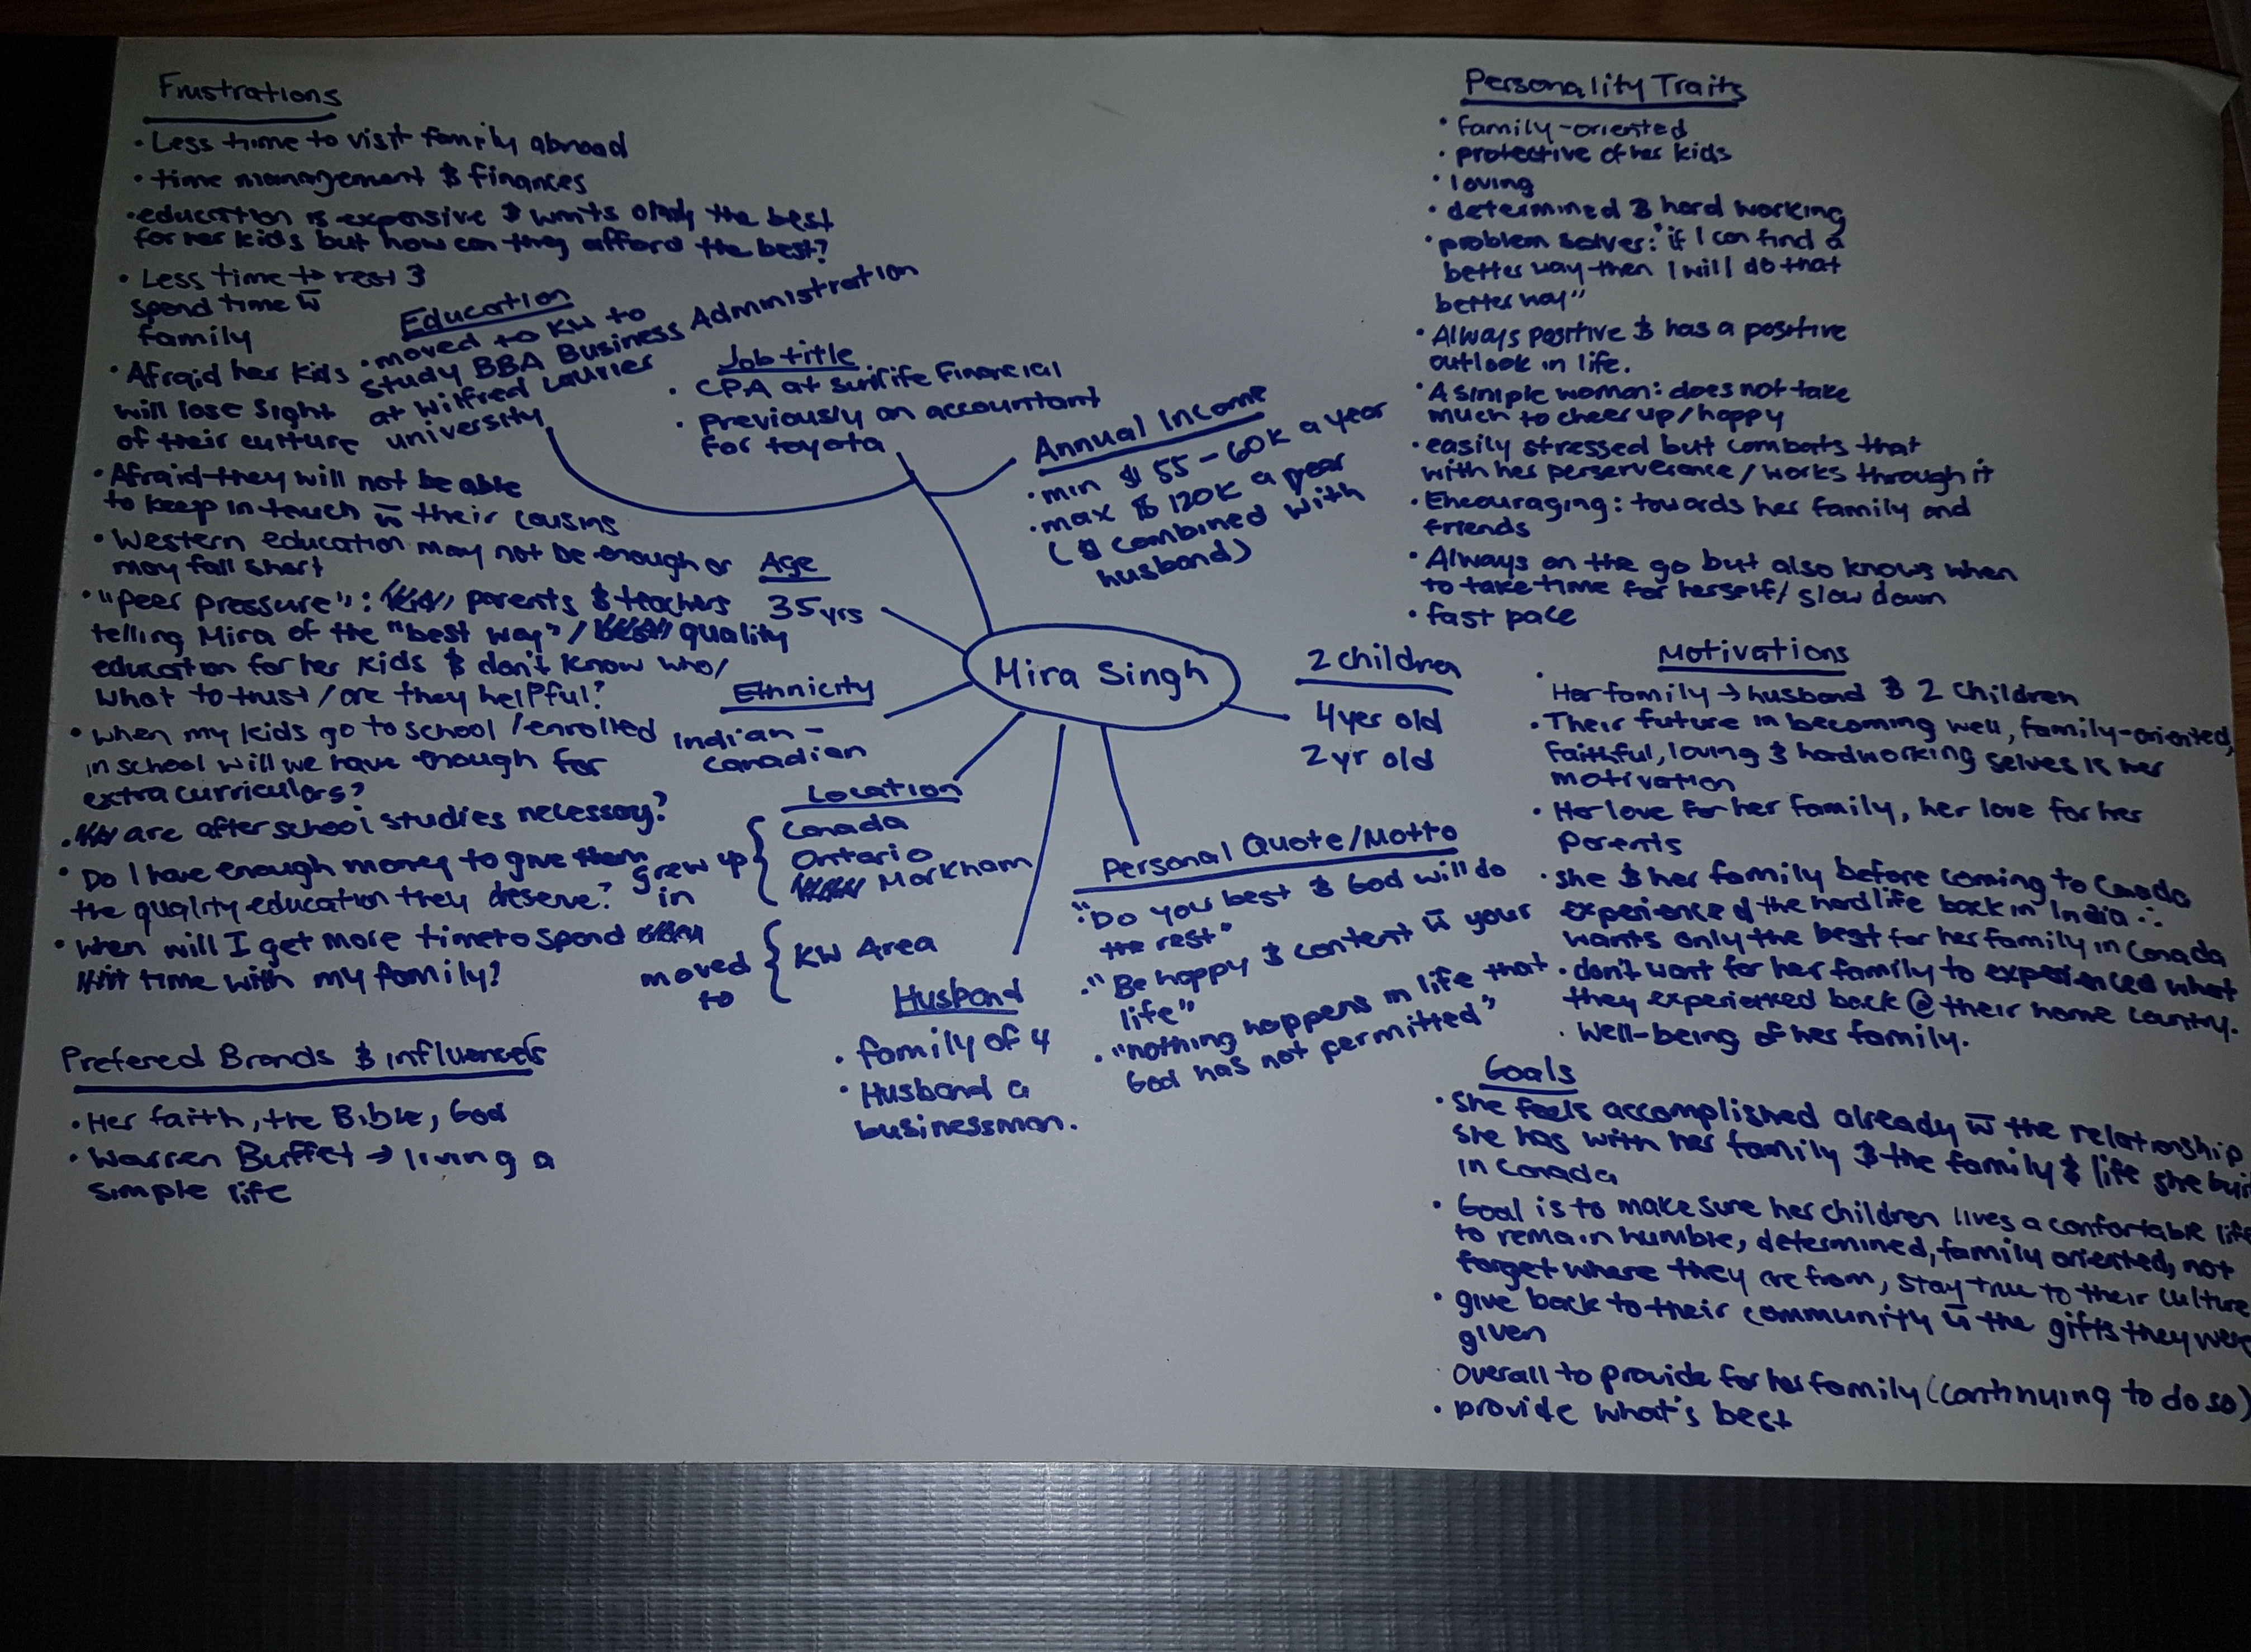 Frustrations
• Less time to visit family abroad
• time management & finances
• education is expensive & wants only the best
for her kids but how can they afford the best?
• Less time to rest &
spend time w̄
family
• Afraid her kids
will lose sight
of their culture
• Afraid they will not be able
to keep in touch w̄ their cousins
• Western education may not be enough or
may fall short
• "peer pressure": parents & teachers
telling Mira of the "best way"/ quality
education for her kids & don't know who/
what to trust / are they helpful?
• when my kids go to school /enrolled
in school will we have enough for
extra curriculars?
• are after school studies necessary?
• Do I have enough money to give them
the quality education they deserve?
• when will I get more time to spend
time with my family?
Prefered Brands & influencers
• Her faith, the Bible, God
• Warren Buffet → living a
simple life
Education
• moved to KW to
study BBA Business Administration
at Wilfred Laurier
university
Job title
• CPA at sunlife Financial
• Previously an accountant
for toyota
Annual Income
• min $ 55 - 60K a year
• max $ 120K a year
($ combined with
husband)
Age
35 yrs
Ethnicity
Indian -
Canadian
Mira Singh
2 children
4 yer old
2 yr old
Location
grew up
in
{ Canada
Ontario
Markham
moved
to
{ KW Area
Husband
• family of 4
• Husband a
businessman.
Personal Quote/Motto
• "Do your best & God will do
the rest"
• "Be happy & content w̄ your
life"
• "nothing happens in life that
God has not permitted"
Personality Traits
• family-oriented
• protective of her kids
• loving
• determined & hard working
• problem solver: "if I can find a
better way then I will do that
better way"
• Always positive & has a positive
outlook in life.
• A simple woman: does not take
much to cheer up/happy
• easily stressed but combats that
with her perserverance / works through it
• Encouraging: towards her family and
friends
• Always on the go but also knows when
to take time for herself/ slow down
• fast pace
Motivations
• Her family → husband & 2 children
• Their future in becoming well, family-oriented,
faithful, loving & hardworking selves is her
motivation
• Her love for her family, her love for her
parents
• she & her family before coming to Canada
experienced the hard life back in India ∴
wants only the best for her family in Canada
• don't want for her family to experienced what
they experienced back @ their home country.
• Well-being of her family.
Goals
• She feels accomplished already w̄ the relationship
she has with her family & the family & life she
in Canada
• Goal is to make sure her children lives a confortable
to remain humble, determined, family oriented, not
forget where they are from, stay true to their culture
• give back to their community w̄ the gifts they
given
• Overall to provide for her family (continuing to do so)
• provide what's best